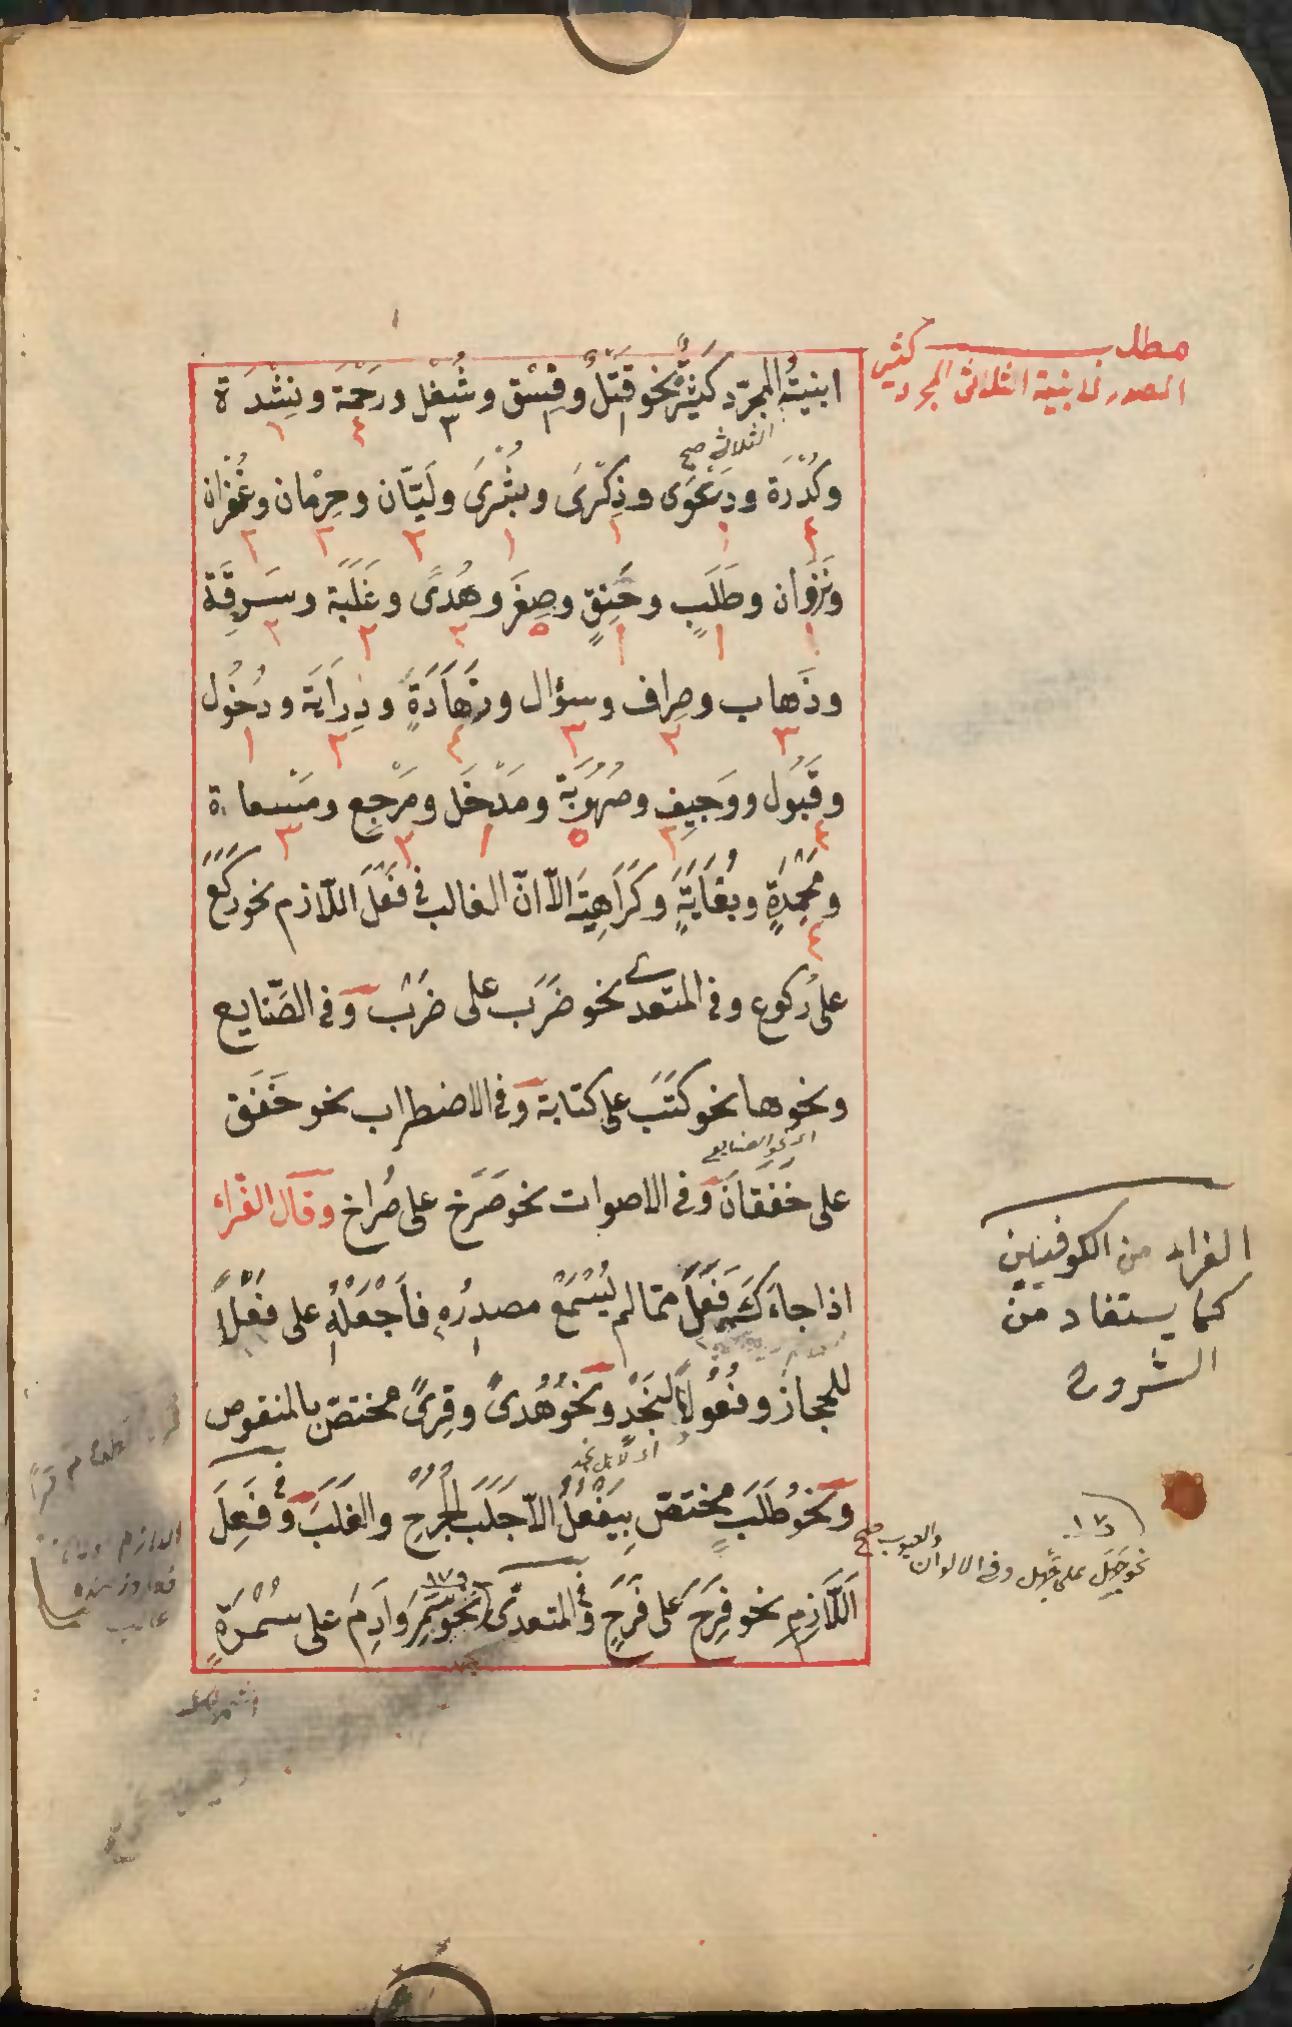 مطلب كثير
المصدر فى ابنية الثلاثى المجرد
ابنيةُ المجرّد كَثِيرٌ نحو قَتْلٌ وفِسْق وشُغْل ورَحْمَة ونِشْدَة
الثلاثى صح
وكُدْرَة ودَعْوَى وذِكْرَى وبُشْرَى ولَيّان وحِرْمان وغُفْران
ونَزَوَان وطَلَبٍ وخَنِقٍ وصِغَر وهُدىً وغَلَبَة وسَرِقَة
وذَهاب وصِراف وسؤال وزَهَادَةٍ ودِرَايَة ودُخُول
وقَبُول ووَجِيف وصُهُوبَة ومَدْخَل ومَرْجِع ومَسْعاة
ومَحْمِدَةٍ وبُغَايَةٍ وكَرَاهِيَة الاّ انّ الغالب فى فَعَلَ اللاّزم نحو ركَعَ
على رُكوع وفى المتعدى نحو ضَرَب على ضَرْب وفى الصَّنايع
ونحوها نحو كتَبَ على كتابة وفى الاضطراب نحو خَفَق
اى نحو الصنايع
على خَفَقَانَ وفى الاصوات نحو صَرَخ على صُراخ وقال الفَرّاء
اذا جاءَك فَعَلَ ممّا لم يُسْمَعْ مصدرُه فاَجْعَلْهُ على فَعْلاً
للحجاز وفُعُولاً لنَجْدٍ ونحوُ هُدىً وقِرىً مختصّ بالمنقوص
اى لاهل نجد
ونحوُ طَلَبٍ مختصّ بِيَفْعُلُ الاّ جَلَبَ الجُرْحِ والغَلَبَ وفى فَعِلَ
اَللاَّزِمِ نحو فِرَحَ على فَرَحٍ وفى المتعدّى نحو سَمِرَ وَادِمَ على سُمْرَةٍ
الفراء من الكوفيين
كما يستفاد من
الشروح
نحو جَهِلَ على جَهْل وفى الالوان والعيوب صح